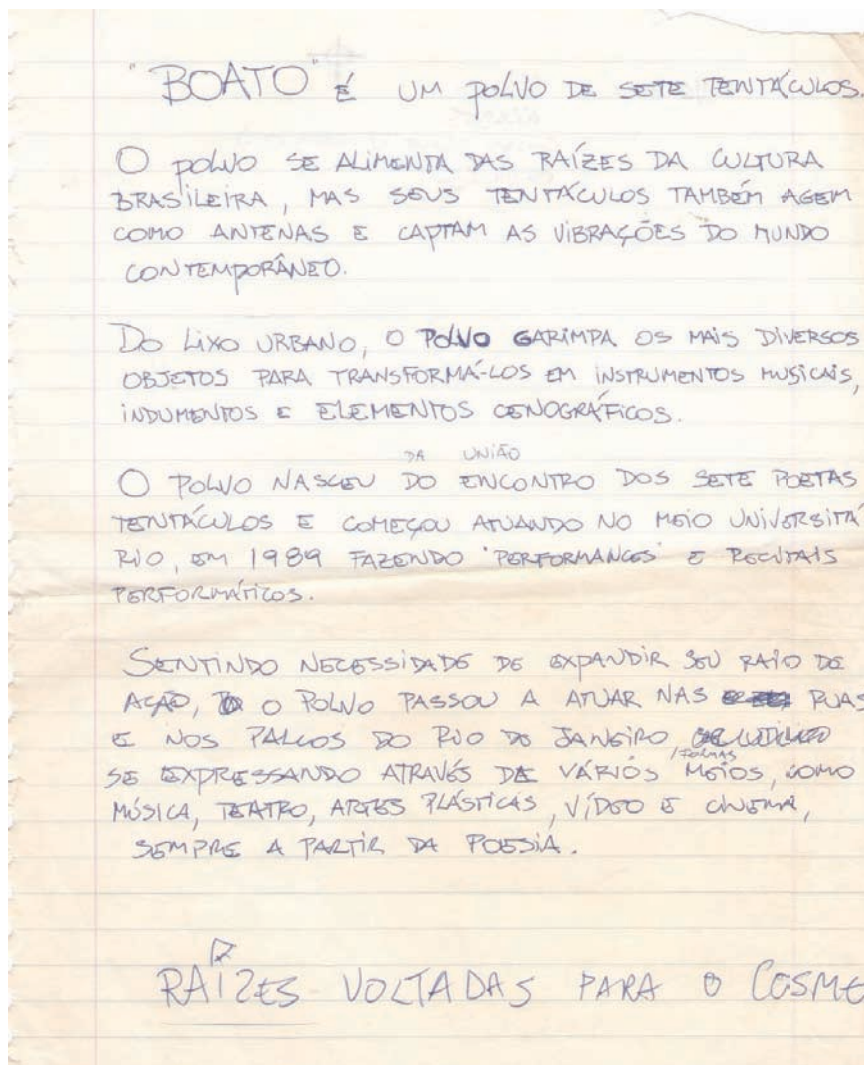 "BOATO" É UM POLVO DE SETE TENTÁCULOS.
O POLVO SE ALIMENTA DAS RAÍZES DA CULTURA
BRASILEIRA, MAS SEUS TENTÁCULOS TAMBÉM AGEM
COMO ANTENAS E CAPTAM AS VIBRAÇÕES DO MUNDO
CONTEMPORÂNEO.
DO LIXO URBANO, O POLVO GARIMPA OS MAIS DIVERSOS
OBJETOS PARA TRANSFORMÁ-LOS EM INSTRUMENTOS MUSICAIS,
INDUMENTOS E ELEMENTOS CENOGRÁFICOS.
DA UNIÃO
O POLVO NASCEU DO ENCONTRO DOS SETE POETAS
TENTÁCULOS E COMEÇOU ATUANDO NO MEIO UNIVERSITÁ
RIO, EM 1989 FAZENDO "PERFORMANCES" E RECITAIS
PERFORMÁTICOS.
SENTINDO NECESSIDADE DE EXPANDIR SEU RAIO DE
AÇÃO, O POLVO PASSOU A ATUAR NAS RUAS
E NOS PALCOS DO RIO DE JANEIRO
/FORMAS
SE EXPRESSANDO ATRAVÉS DE VÁRIOS MEIOS, COMO
MÚSICA, TEATRO, ARTES PLÁSTICAS, VÍDEO E CINEMA,
SEMPRE A PARTIR DA POESIA.
RAÍZES VOLTADAS PARA O COSME